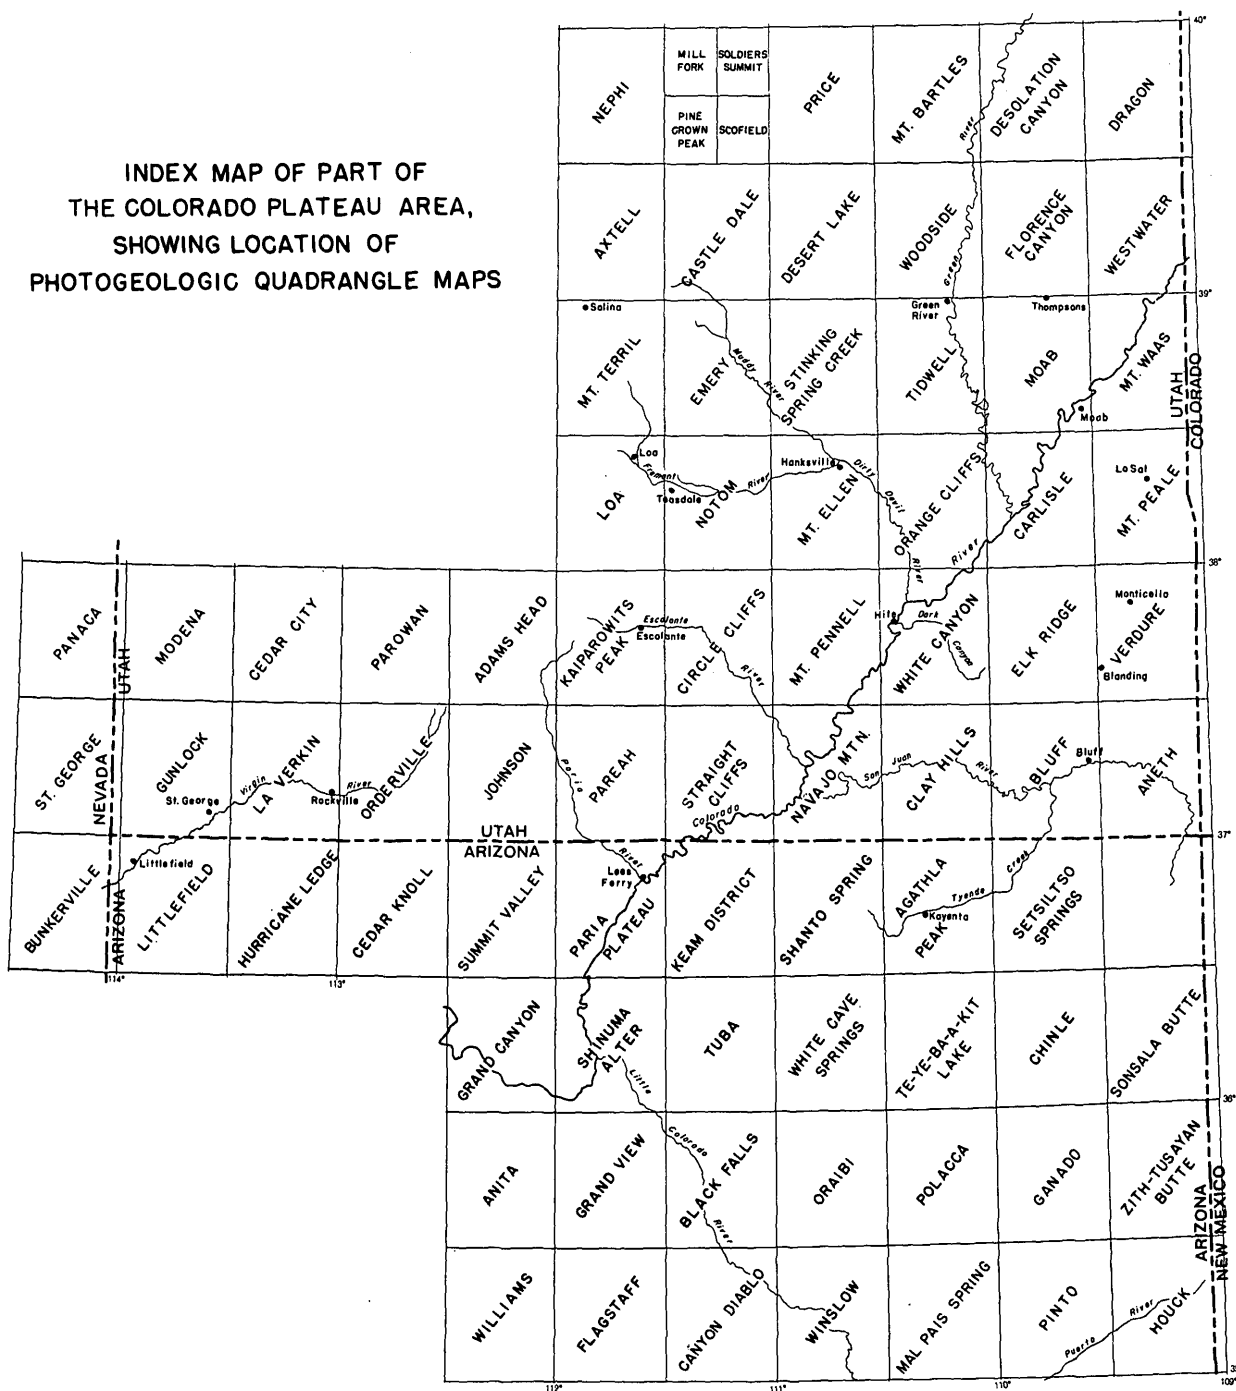 INDEX MAP OF PART OF
THE COLORADO PLATEAU AREA,
SHOWING LOCATION OF
PHOTOGEOLOGIC QUADRANGLE MAPS
40°
NEPHI
MILL
FORK
SOLDIERS
SUMMIT
PINE
CROWN
PEAK
SCOFIELD
PRICE
MT. BARTLES
River
DESOLATION
CANYON
DRAGON
AXTELL
CASTLE DALE
DESERT LAKE
WOODSIDE
Green
FLORENCE
CANYON
WESTWATER
39°
Salina
Green
River
Thompsons
MT. TERRIL
EMERY
Muddy
River
STINKING
SPRING CREEK
TIDWELL
MOAB
MT. WAAS
Moab
UTAH
COLORADO
Loa
Fremont
River
Teasdale
Hanksville
Dirty
Devil
River
LOA
NOTOM
MT. ELLEN
ORANGE CLIFFS
CARLISLE
La Sal
MT. PEALE
River
38°
PANACA
MODENA
CEDAR CITY
PAROWAN
ADAMS HEAD
KAIPAROWITS
PEAK
Escalante
Escalante
River
CIRCLE
CLIFFS
MT. PENNELL
Hite
Dark
Canyon
WHITE CANYON
ELK RIDGE
Monticello
VERDURE
Blanding
UTAH
NEVADA
ST. GEORGE
GUNLOCK
St. George
Virgin
River
LA VERKIN
Rockville
ORDERVILLE
JOHNSON
Paria
River
PAREAH
STRAIGHT
CLIFFS
Colorado
NAVAJO MTN.
San Juan
River
CLAY HILLS
BLUFF
Bluff
ANETH
UTAH
ARIZONA
37°
BUNKERVILLE
Littlefield
ARIZONA
LITTLEFIELD
HURRICANE LEDGE
CEDAR KNOLL
SUMMIT VALLEY
Lees
Ferry
PARIA
PLATEAU
KEAM DISTRICT
SHANTO SPRING
AGATHLA
PEAK
Kayenta
Tyende
Creek
SETSILTSO
SPRINGS
114°
113°
GRAND CANYON
SHINUMA
ALTER
TUBA
WHITE CAVE
SPRINGS
TE-YE-BA-A-KIT
LAKE
CHINLE
SONSALA BUTTE
36°
Little
Colorado
River
ANITA
GRAND VIEW
BLACK FALLS
ORAIBI
POLACCA
GANADO
ZITH-TUSAYAN
BUTTE
ARIZONA
NEW MEXICO
WILLIAMS
FLAGSTAFF
CANYON DIABLO
WINSLOW
MAL PAIS SPRING
PINTO
Puerto
River
HOUCK
112°
111°
110°
109°